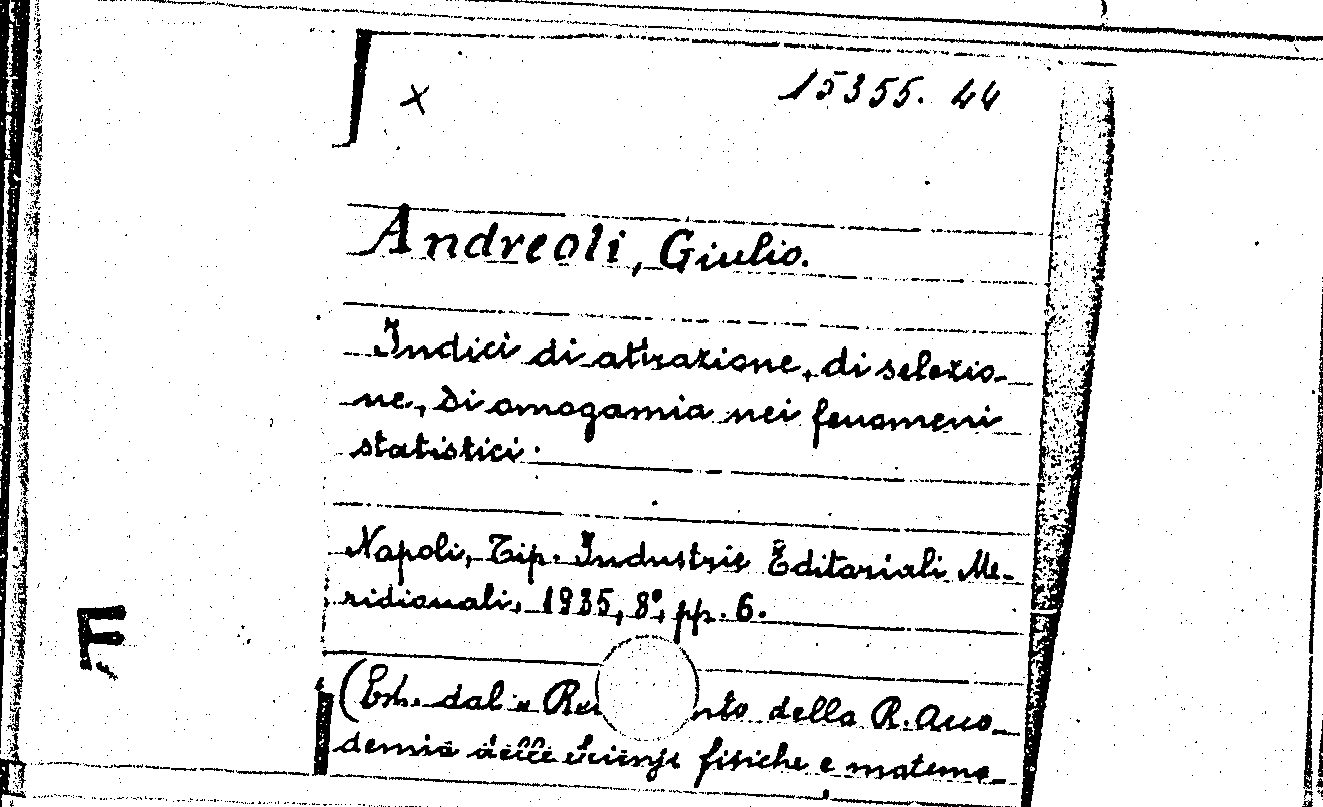 x
15355.44
Andreoli, Giulio.
Indici di attrazione, di selezio-
ne, di omogamia nei fenomeni
statistici.
Napoli, Tip. Industrie Editoriali Me-
ridionali, 1935, 8°, pp. 6.
(Estr. dal « nto della R. Acca-
demia delle Scienze fisiche e matema-